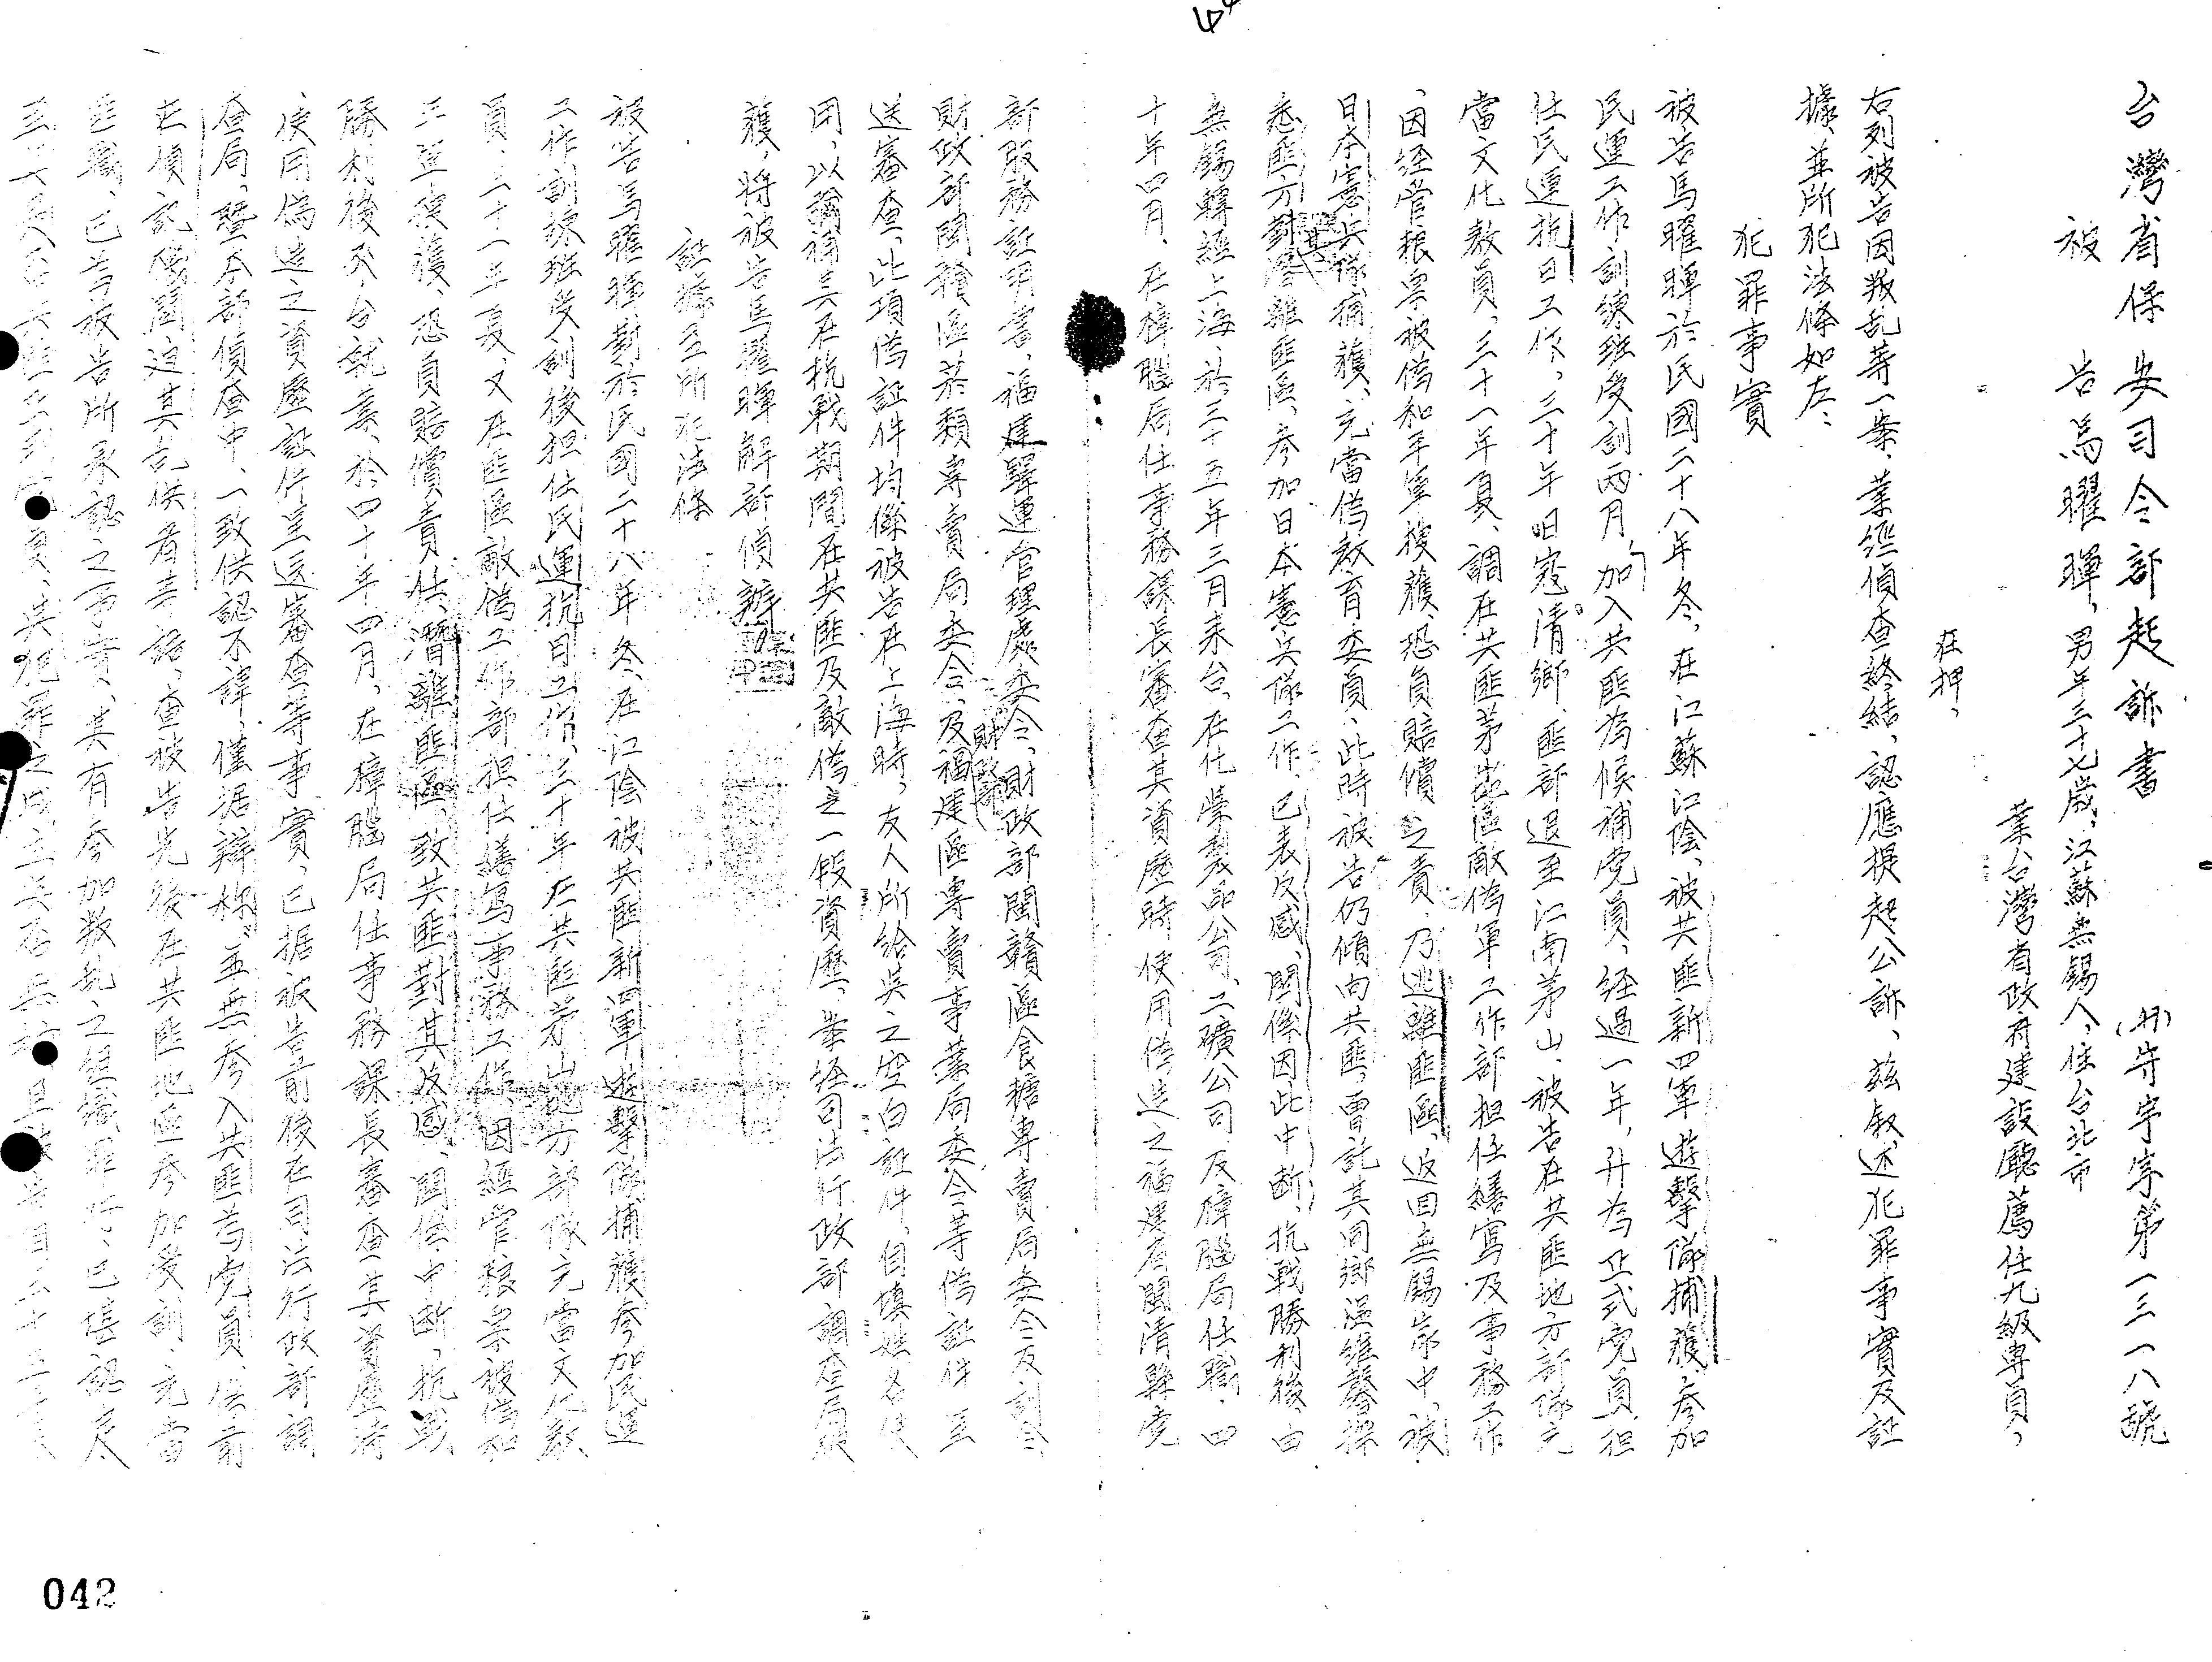 台灣省保安司令部起訴書
(卅)安字第一三一八號
被告馬曜暉,男年三十七歲,江蘇無錫人,住台北市
業台灣省政府建設廳薦任九級專員,
在押,
右列被告因叛乱等一案、業經偵查終結、認應提起公訴、茲敘述犯罪事實及証
據、並所犯法條如左、
犯罪事實
被告馬曜暉於民國二十八年冬,在江蘇江陰、被共匪新四軍遊擊隊捕獲、參加
民運工作訓練班受訓兩月,加入共匪為候補党員、經過一年,升為正式党員、担
任民運抗日工作,三十年日寇清鄉、匪部退至江南茅山、被告在共匪地方部隊充
當文化教員、三十一年夏、調在共匪茅山區敵偽軍工作部担任繕寫及事務工作
、因経管粮票被偽和平軍搜獲、恐負賠償之責、乃逃離匪區、返回無錫家中、被
日本憲兵隊捕獲、充當偽教育委員、此時被告仍傾向共匪,曾託其同鄉溫維馨探
悉匪方對其潛離匪區、參加日本憲兵隊工作、已表反感、関係因此中断、抗戰勝利後、由
無錫轉經上海、於三十五年三月来台、在化學製品公司、工礦公司、及樟腦局任職、四
十年四月、在樟腦局任事務課長審查其資歷時使用偽造之福建省閩清縣党
部服務証明書、福建驛運管理處委令、財政部閩贛區食糖專賣局委令及訓令、
財政部閩贛區菸類專賣局委令、及財政部福建區專賣事業局委令等偽証件呈
送審查、此項偽証件均係被告在上海時,友人所給与之空白証件、自填姓名使
用,以彌補其在抗戰期間、在共匪及敵偽之一段資歷、案経司法行政部調查局破
獲,將被告馬曜暉解部偵辦
証據並所犯法條
被告馬曜暉對於民國二十八年冬、在江陰被共匪新四軍遊擊隊捕獲參加民運
工作訓練班受訓後担任民運抗日工作,三十年在共匪茅山地方部隊充當文化教
員、三十一年夏、又在匪區敵偽工作部担任繕寫事務工作、因経管粮票被偽和
平軍搜獲、恐負賠償責任、潛離匪區、致共匪對其反感、関係中断,抗戰
勝利後來台就業、於四十年四月,在樟腦局任事務課長審查其資歷時
、使用偽造之資歷証件呈送審查等事實,已据被告前後在司法行政部調
查局,暨本部偵查中、一致供認不諱、僅据辯稱“並無參入共匪為党員、供前
在偵訊機関迫其乱供者等語,查被告先後在共匪地區參加受訓、充當
匪職、已為被告所承認之事實、其有參加叛乱之組織罪行、已堪認定